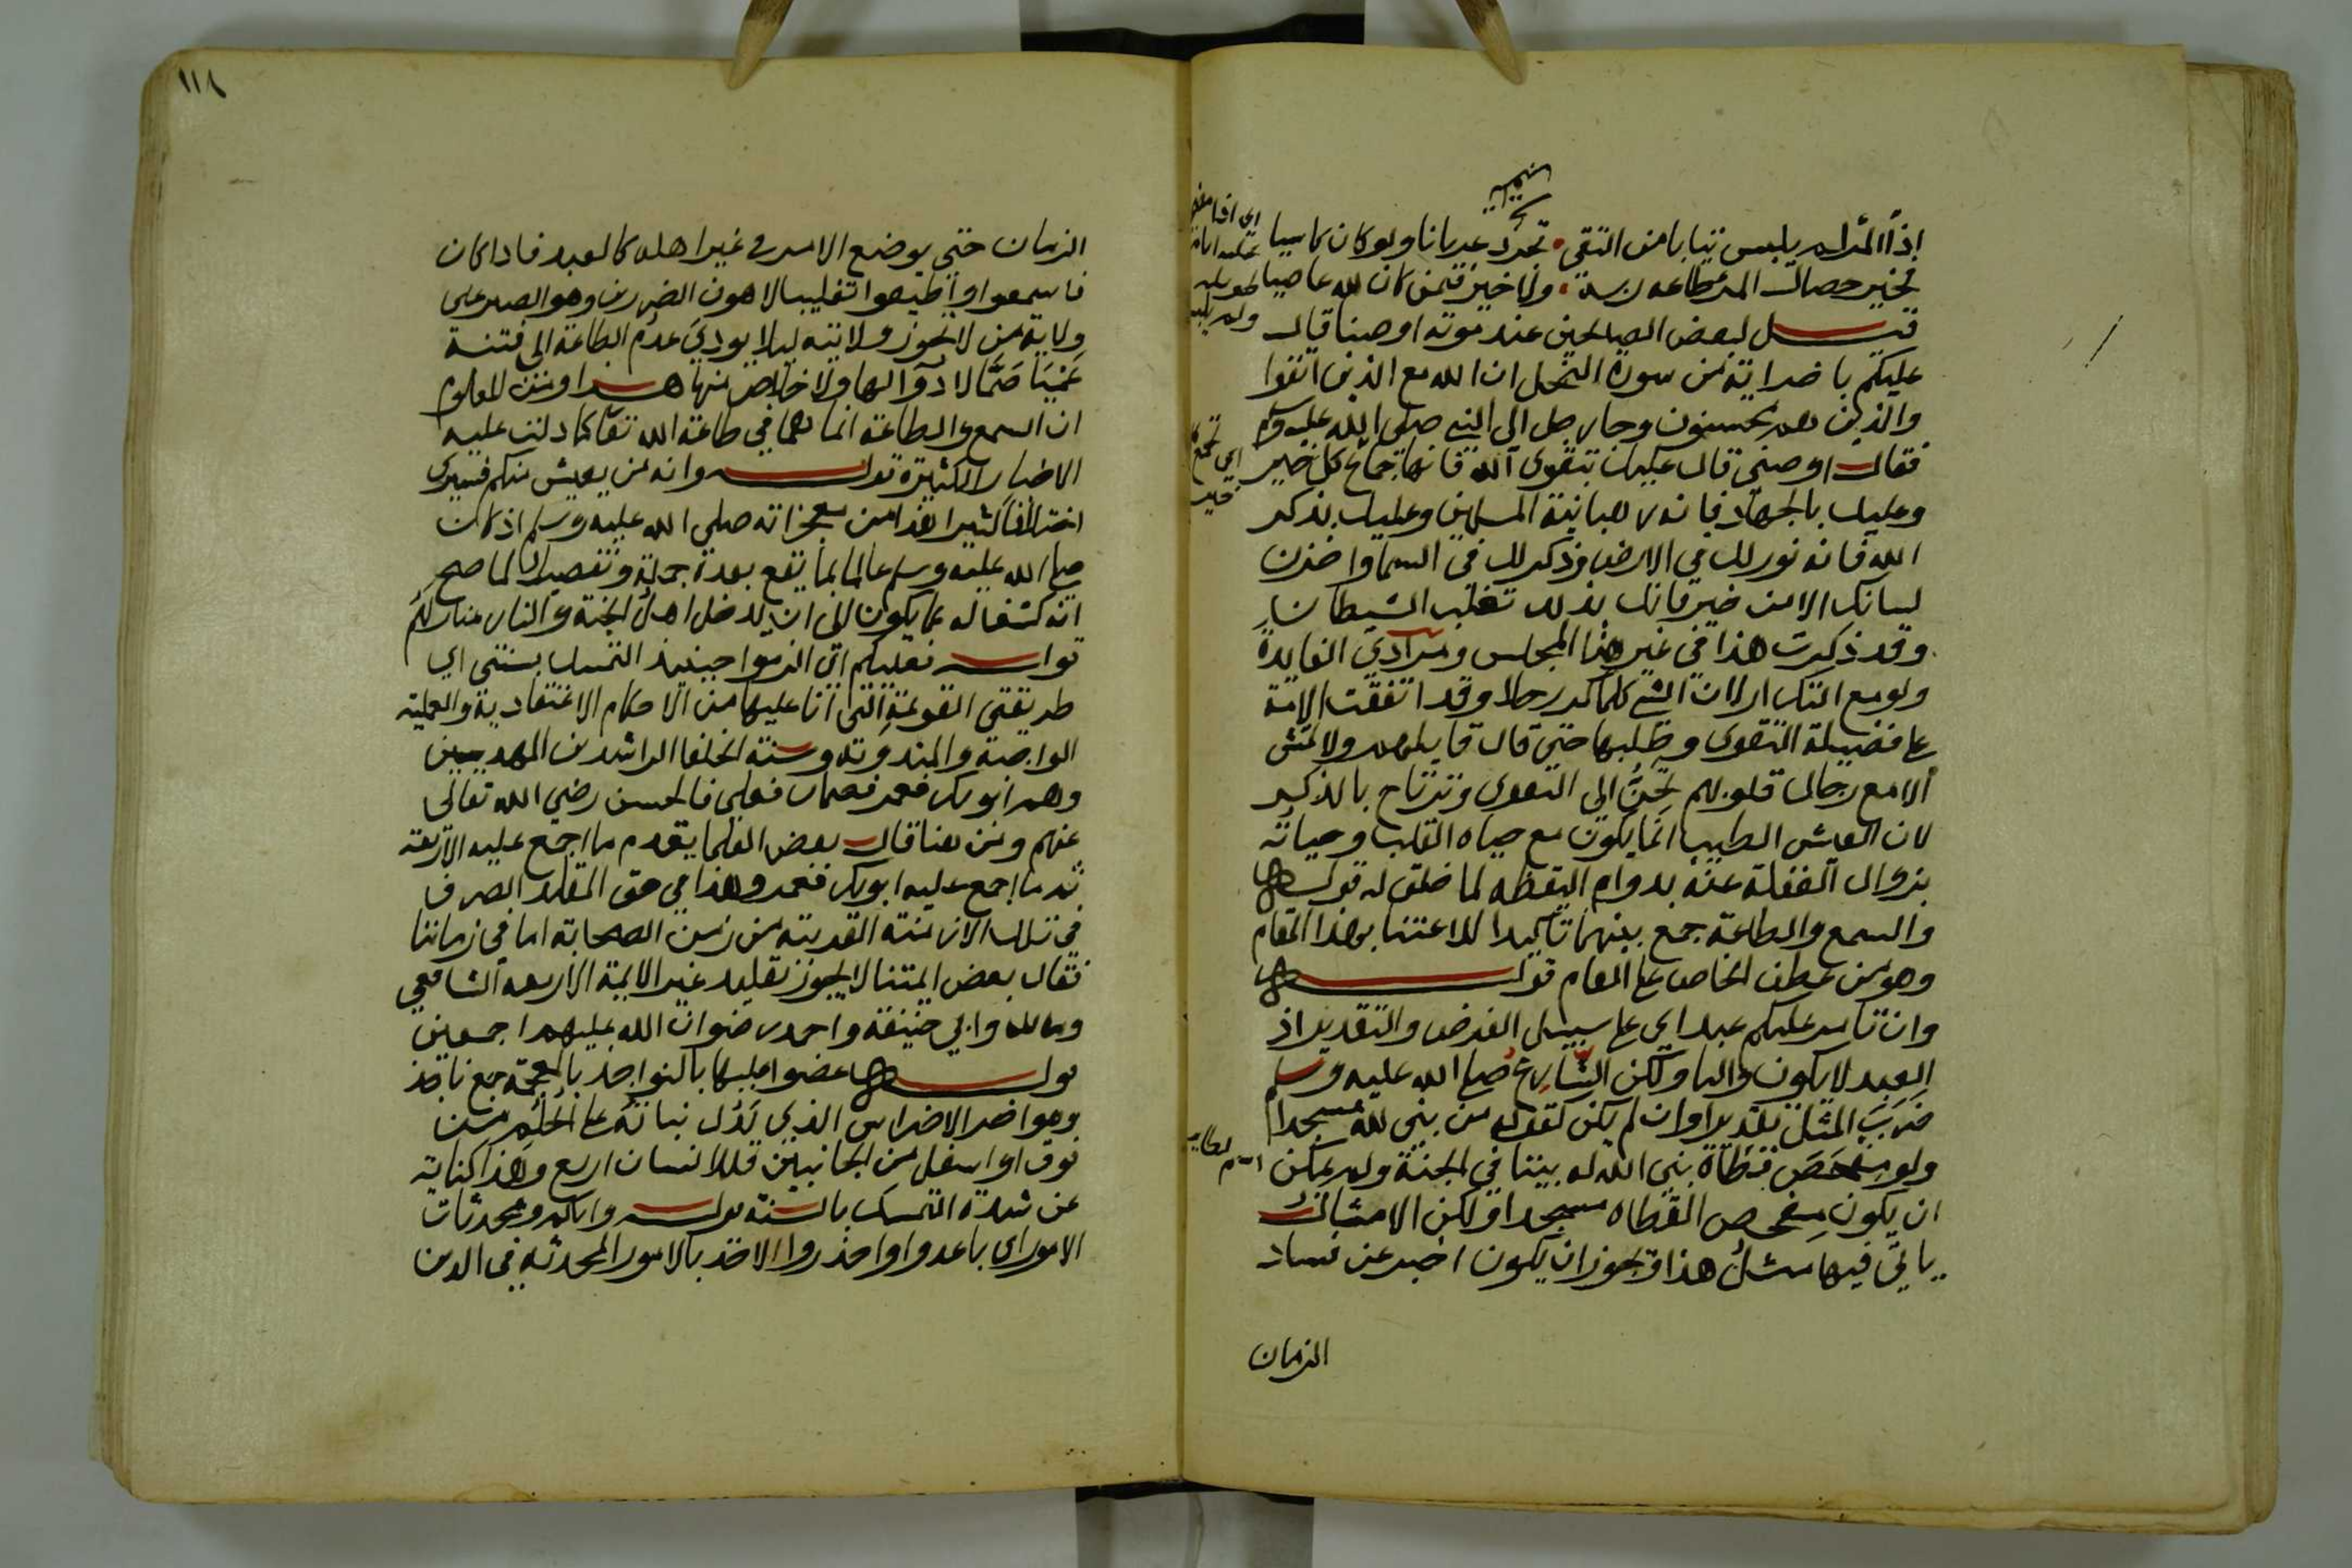 اذا المرء لم يلبس ثيابا من التقى تجرد عريانا ولو كان كاسيا
فخير خصال المرء طاعة ربه ولا خير فيمن كان لله عاصيا
قيل لبعض الصالحين عند موته اوصنا قال
عليكم باخر اية من سورة النحل ان الله مع الذين اتقوا
والذين هم محسنون وجا رجل الى النبي صلى الله عليه وسلم
فقال اوصني قال عليك بتقوى الله فانها جماع كل خير
وعليك بالجهاد فانه رهبانية المسلمين وعليك بذكر
الله فانه نور لك في الارض وذكر لك في السما واخزن
لسانك الا من خير فانك بذلك تغلب الشيطان
وقد ذكرت هذا في غير هذا المجلس ومرادي الفايدة
ولو مع التكرار لان الشي كلما كرر حلا وقد اتفقت الامة
على فضيلة التقوى وطلبها حتى قال قايلهم ولا تمش
الا مع رجال قلوبهم تحن الى التقوى وترتاح بالذكر
لان العيش الطيب انما يكون مع حياه القلب وحياته
بزوال الغفلة عنه بدوام اليقظه لما خلق له قوله
والسمع والطاعة جمع بينهما تاكيدا للاعتنا بهذا المقام
وهو من عطف الخاص على العام قوله
وان تامر عليكم عبد اي على سبيل الفرض والتقدير اذ
العبد لا يكون واليا ولكن الشارع صلى الله عليه وسلم
ضرب المثل تقديرا وان لم يكن كقوله من بنى لله مسجدا
ولو مفحص قطاة بنى الله له بيتا في الجنة ولم يمكن
ان يكون مفحص القطاه مسجدا ولكن الامثال
ياتي فيها مثل هذا ويجوز ان يكون اخبر عن فساد
الزمان
١١٨
الزمان حتى يوضع الامر في غير اهله كالعبد فاذا كان
فاسمعوا واطيعوا تغليبا لاهون الضررين وهو الصبر على
ولاية من لا تجوز ولايته ليلا يودي عدم الطاعة الى فتنة
عميا صما لا دوا لها ولا خلاص منها هذا ومن المعلوم
ان السمع والطاعة انما هما في طاعة الله تعالى كما دلت عليه
الاخبار الكثيرة قوله وانه من يعيش منكم فسيرى
اختلافا كثيرا هذا من معجزاته صلى الله عليه وسلم اذ كان
صلى الله عليه وسلم عالما بما يقع بعده جملة وتفصيلا لما صح
انه كشف له عما يكون الى ان يدخل اهل الجنة والنار منازلهم
قوله فعليكم اي الزموا حينيذ التمسك بسنتي اي
طريقتي القويمة التي انا عليها من الاحكام الاعتقادية والعملية
الواجبة والمندوبة وسنة الخلفا الراشدين المهديين
وهم ابو بكر فعمر فعثمان فعلي فالحسن رضي الله تعالى
عنهم ومن هنا قال بعض العلما يقدم ما اجمع عليه الاربعة
ثم ما اجمع عليه ابو بكر فعمر وهذا في حق المقلد الصرف
في تلك الازمنة القريبة من زمن الصحابة اما في زماننا
فقال بعض ايمتنا لا يجوز تقليد غير الايمة الاربعه الشافعي
ومالك وابي حنيفة واحمد رضوان الله عليهم اجمعين
قوله عضوا عليها بالنواجذ بالمعجمة جمع ناجذ
وهو اخر الاضراس الذي يدل نباته على الحلم من
فوق او اسفل من الجانبين فللانسان اربع وهذا كناية
عن شدة التمسك بالسنة قوله واياكم ومحدثات
الامور اي باعدوا واحذروا الاخذ بالامور المحدثة في الدين